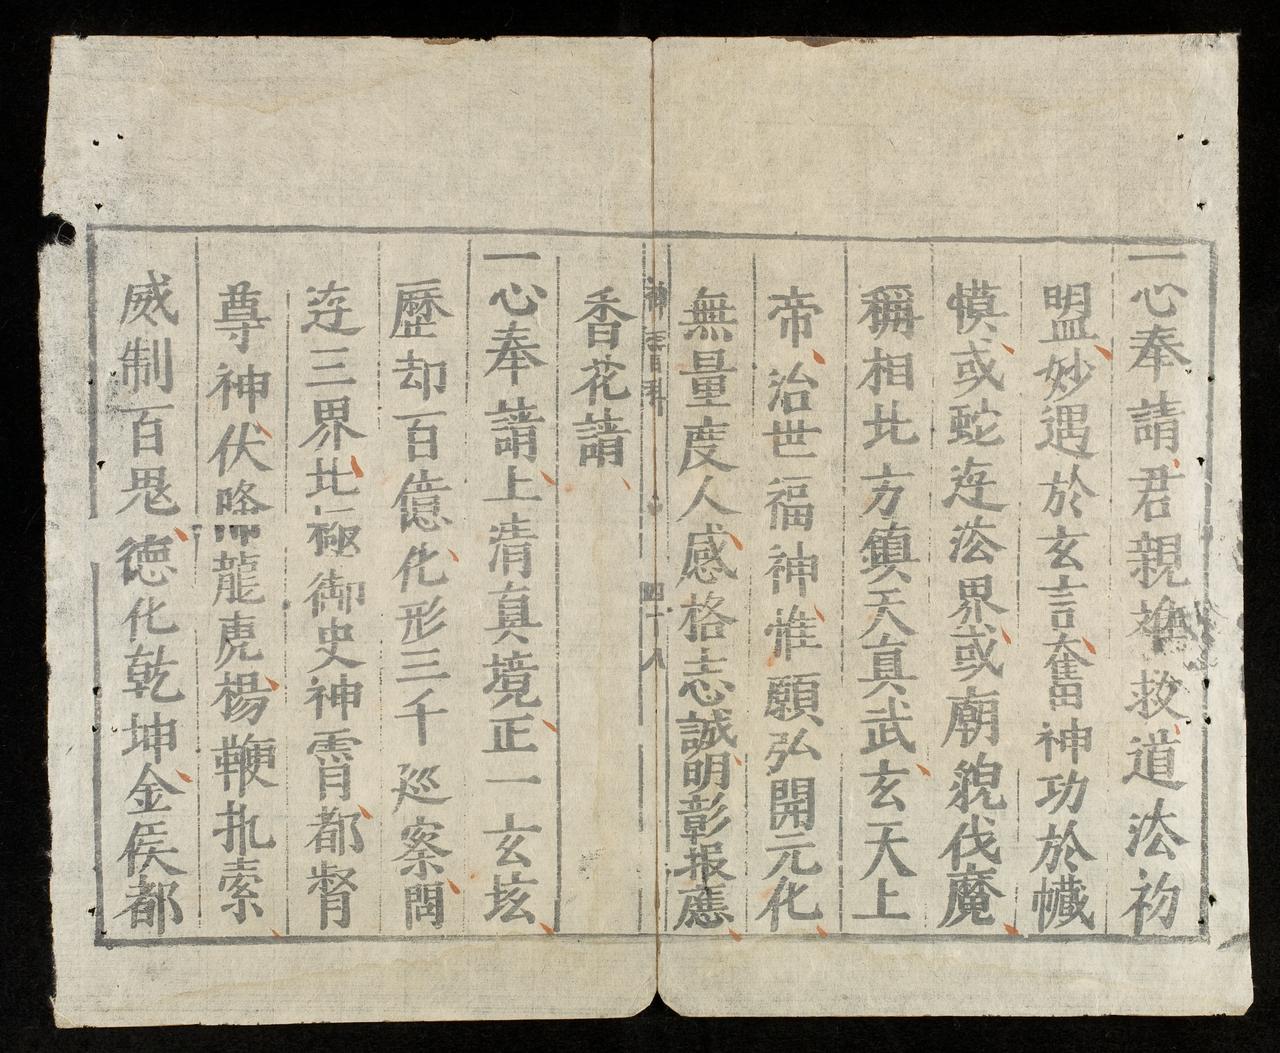 一心奉請君親推救道法初
明盟妙遇於玄言奮神功於幟
懺或蛇迓法界或廟貌伐魔
稱相北方鎮天真武玄天上
帝治世福神惟願弘開元化
無量度人感格志誠明彰报應
神 百科 四十八
香花請
一心奉請上清真境正一玄坛
歷却百億化形三千巡察閻
迓三界北極御史神霄都督
尊神伏降龍虎楊鞭扎索
威制百鬼德化乾坤金侯都